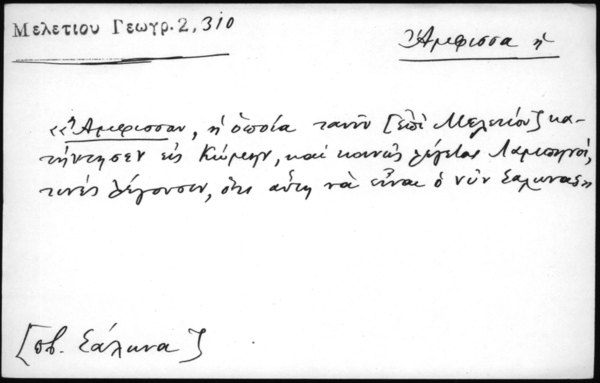 Μελετίου Γεωγρ. 2, 310
Ἄμφισσα ἡ
«Ἄμφισσαν, ἡ ὁποία τανῦν [ἐπὶ Μελετίου] κα-
τήντησεν εἰς Κώμην, καὶ κοινῶς λέγεται
τινὲς λέγουσιν, ὅτι αὕτη νὰ εἶναι ὁ νῦν Σάλωνας»
[πβ. Σάλωνα]